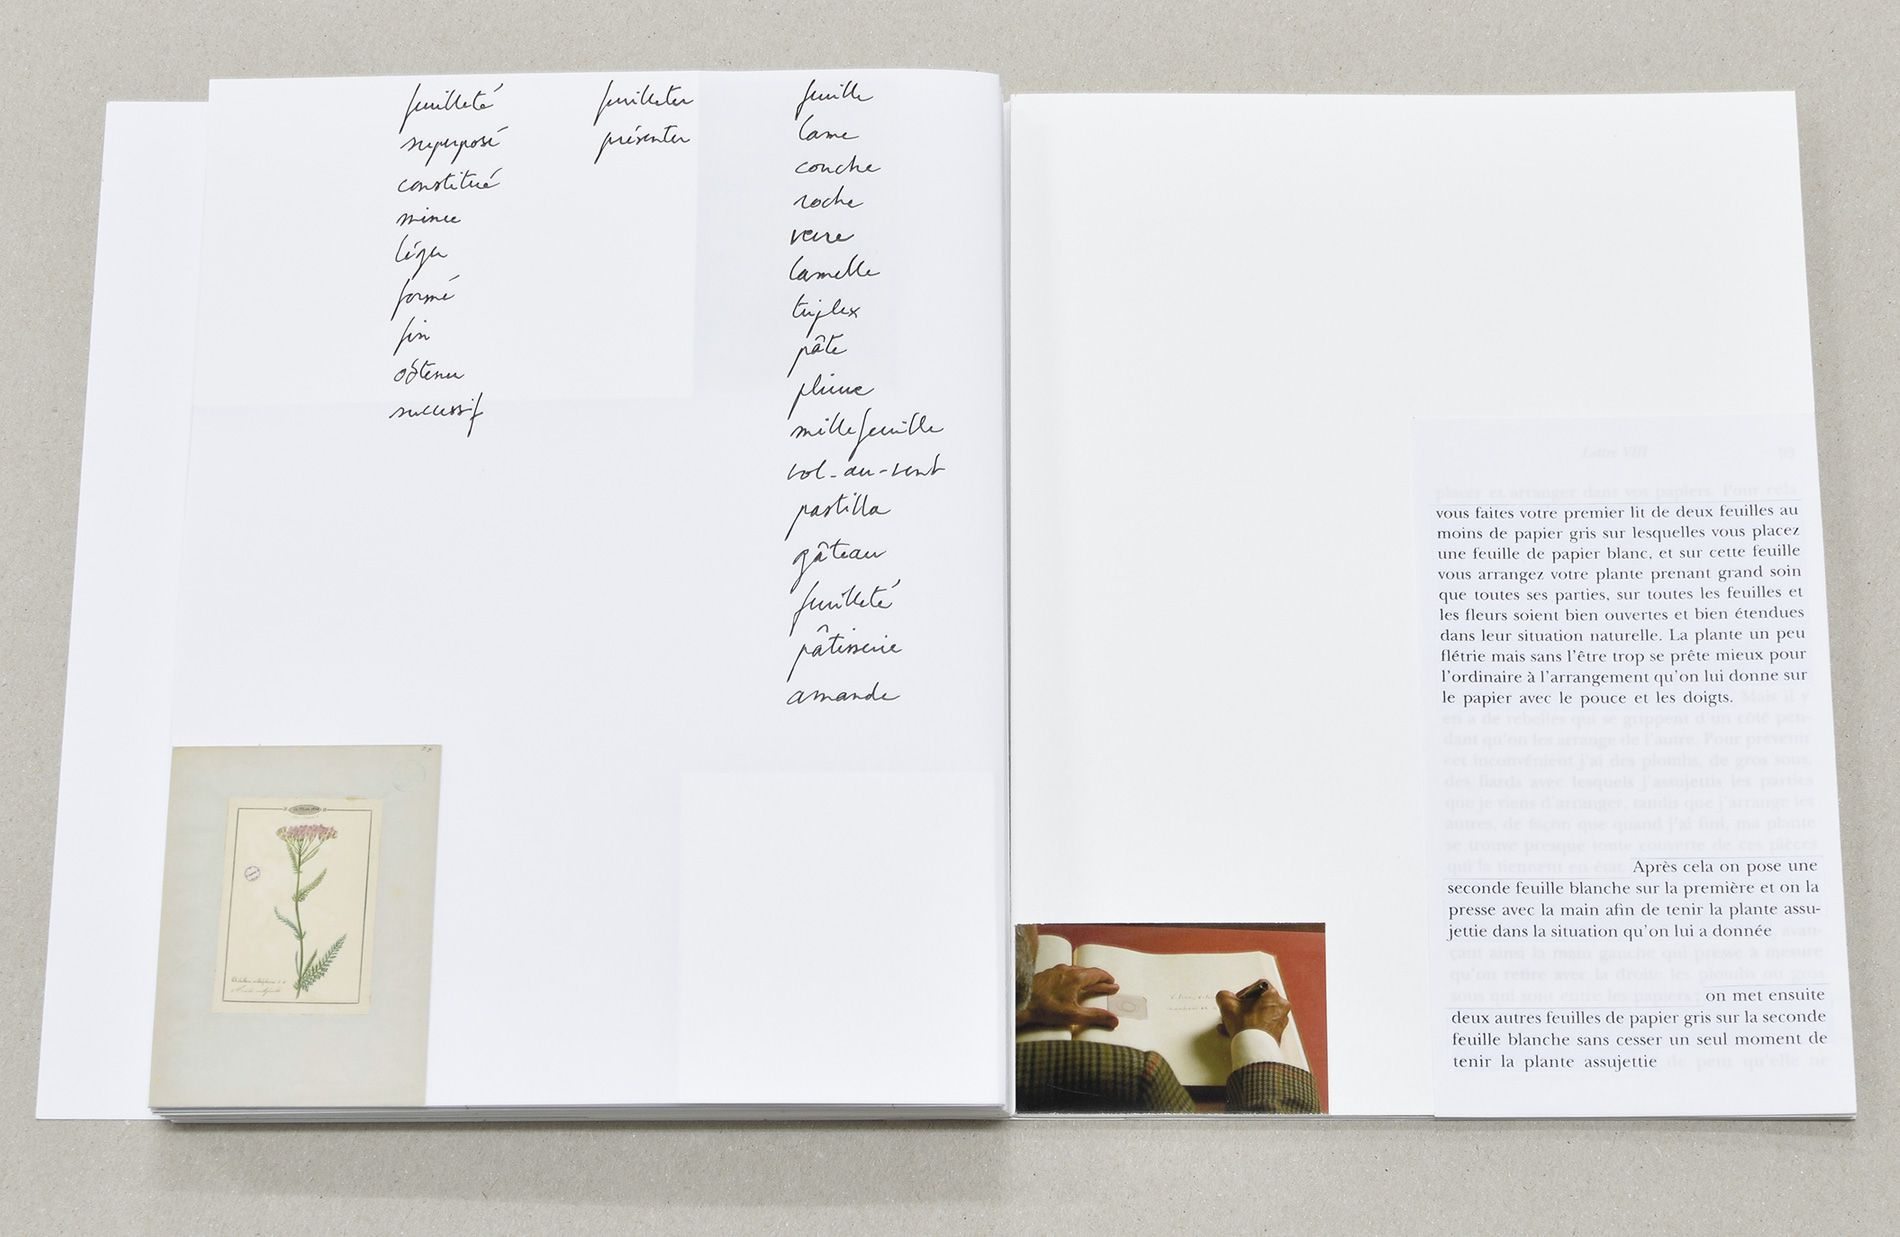 feuilleté
superposé
constitué
mince
léger
formé
fin
obtenu
successif
feuilleter
présenter
feuille
lame
couche
roche
verre
lamelle
triplex
pâte
pliure
millefeuille
vol-au-vent
pastilla
gâteau
feuilleté
pâtisserie
amande
Lettre VIII
placer et arranger dans vos papiers. Pour cela
vous faites votre premier lit de deux feuilles au
moins de papier gris sur lesquelles vous placez
une feuille de papier blanc, et sur cette feuille
vous arrangez votre plante prenant grand soin
que toutes ses parties, sur toutes les feuilles et
les fleurs soient bien ouvertes et bien étendues
dans leur situation naturelle. La plante un peu
flétrie mais sans l'être trop se prête mieux pour
l'ordinaire à l'arrangement qu'on lui donne sur
le papier avec le pouce et les doigts. Mais il y
en a de rebelles qui se grippent d'un côté pen-
dant qu'on les arrange de l'autre. Pour prévenir
cet inconvénient j'ai des plombs, de gros sous,
des liards avec lesquels j'assujettis les parties
que je viens d'arranger, tandis que j'arrange les
autres, de façon que quand j'ai fini, ma plante
se trouve presque toute couverte de ces pièces
qui la tiennent en état. Après cela on pose une
seconde feuille blanche sur la première et on la
presse avec la main afin de tenir la plante assu-
jettie dans la situation qu'on lui a donnée avan-
çant ainsi la main gauche qui presse à mesure
qu'on retire avec la droite les plombs ou gros
sous qui sont entre les papiers; on met ensuite
deux autres feuilles de papier gris sur la seconde
feuille blanche sans cesser un seul moment de
tenir la plante assujettie de peur qu'elle ne